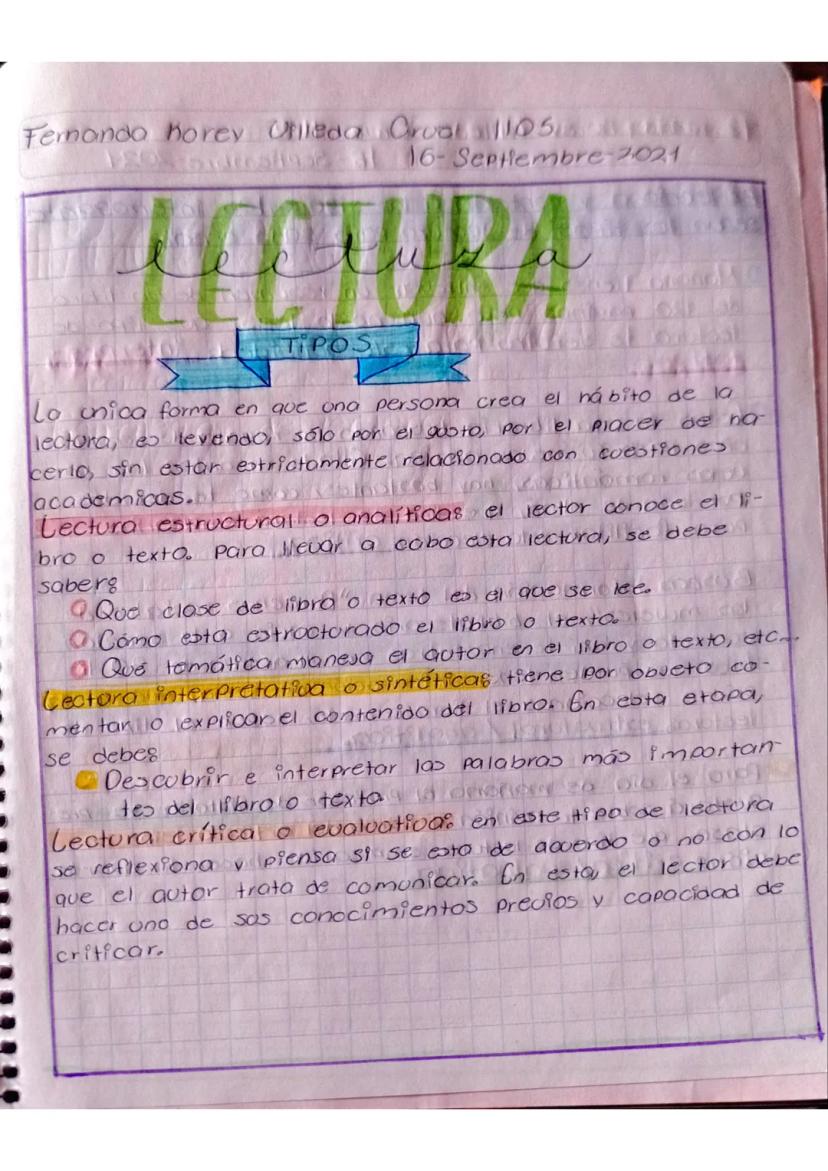 Fernanda Korev Villeda Cruz 1105
16-Septiembre-2021
LECTURA
lectura
TIPOS
La unica forma en que una persona crea el hábito de la
lectura, es leyendo, sólo por el gusto, por el placer de ha-
cerlo, sin estar estrictamente relacionado con cuestiones
academicas.
Lectura estructural o analítica: el lector conoce el li-
bro o texto. Para llevar a cabo esta lectura, se debe
saber:
Que clase de libro o texto es el que se lee.
Cómo esta estructurado el libro o texto.
Qué temática maneja el autor en el libro o texto, etc...
Lectura interpretativa o sintética: tiene por objeto co-
mentar lo explicar el contenido del libro. En esta etapa,
se debe:
Descubrir e interpretar las palabras más importan-
tes del libro o texto
Lectura crítica o evaluativa: en este tipo de lectura
se reflexiona y piensa si se esta de acuerdo o no con lo
que el autor trata de comunicar. En esta, el lector debe
hacer uno de sus conocimientos previos y capacidad de
criticar.